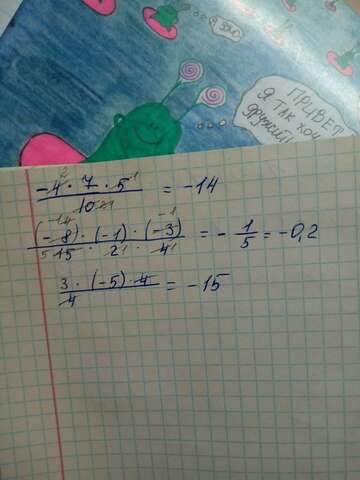 я зло
ПРИВЕТ
Я ТАК ХОЧ
дружить
-4 · 7 · 5 / 10 = -14
(-8) · (-1) · (-3) / 15 · 2 · 4 = - 1/5 = -0,2
3 · (-5) · 4 / 4 = -15